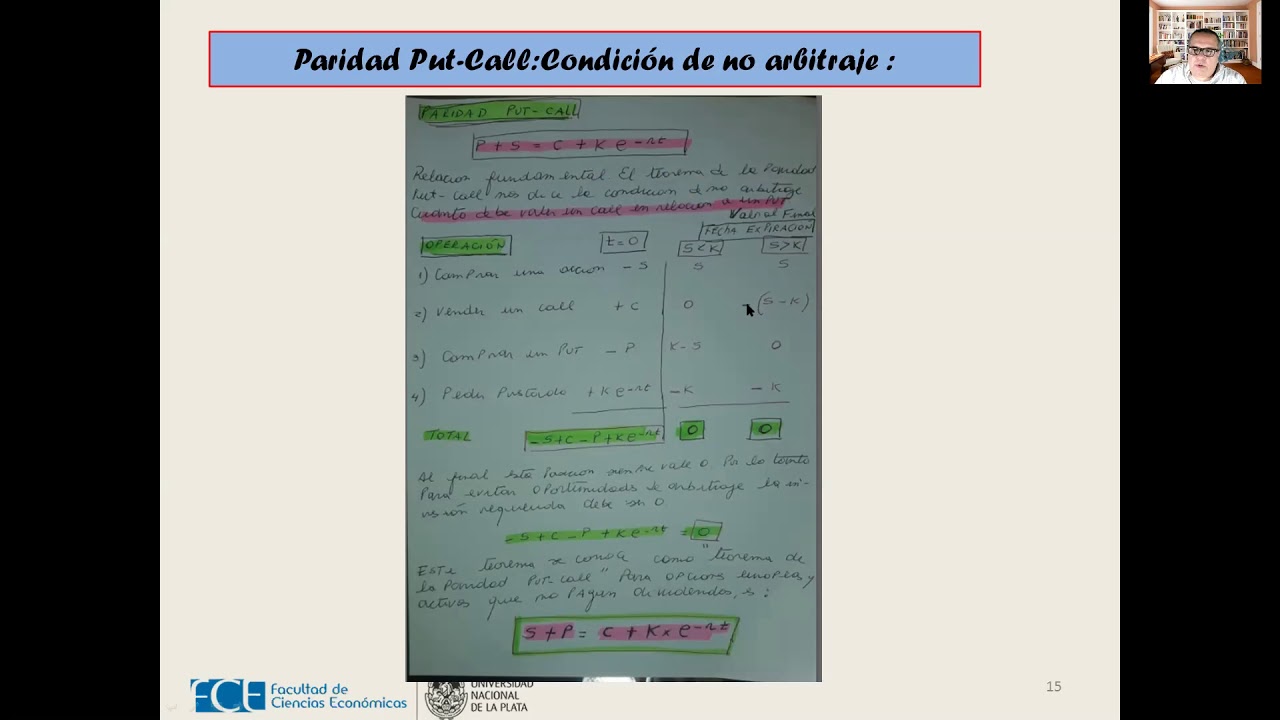 Paridad Put-Call:Condición de no arbitraje :
PARIDAD PUT-CALL
P + S = C + K e^-rt
Relacion fundamental El teorema de la Paridad
Put-Call nos dice la condicion de no arbitraje
Cuanto debe valer un call en relacion a un PUT
Valor al Final
FECHA EXPIRACION
OPERACIÓN t=0 S<K S>K
1) Comprar una accion - S S S
2) Vender un call + C 0 -(S-K)
3) Comprar un Put - P K-S 0
4) Pedir Prestado + K e^-rt -K -K
TOTAL -S+C-P+Ke^-rt 0 0
Al final esta Posicion siempre vale 0. Por lo tanto
Para evitar oportunidades de arbitraje la in-
version requerida debe ser 0.
-S+C-P+Ke^-rt = 0
Este teorema se conoce como "teorema de
la Paridad Put-call" Para opciones europeas y
activos que no Pagan dividendos, es:
S+P = C + K x e^-rt
FCE Facultad de
Ciencias Económicas
UNIVERSIDAD
NACIONAL
DE LA PLATA
15